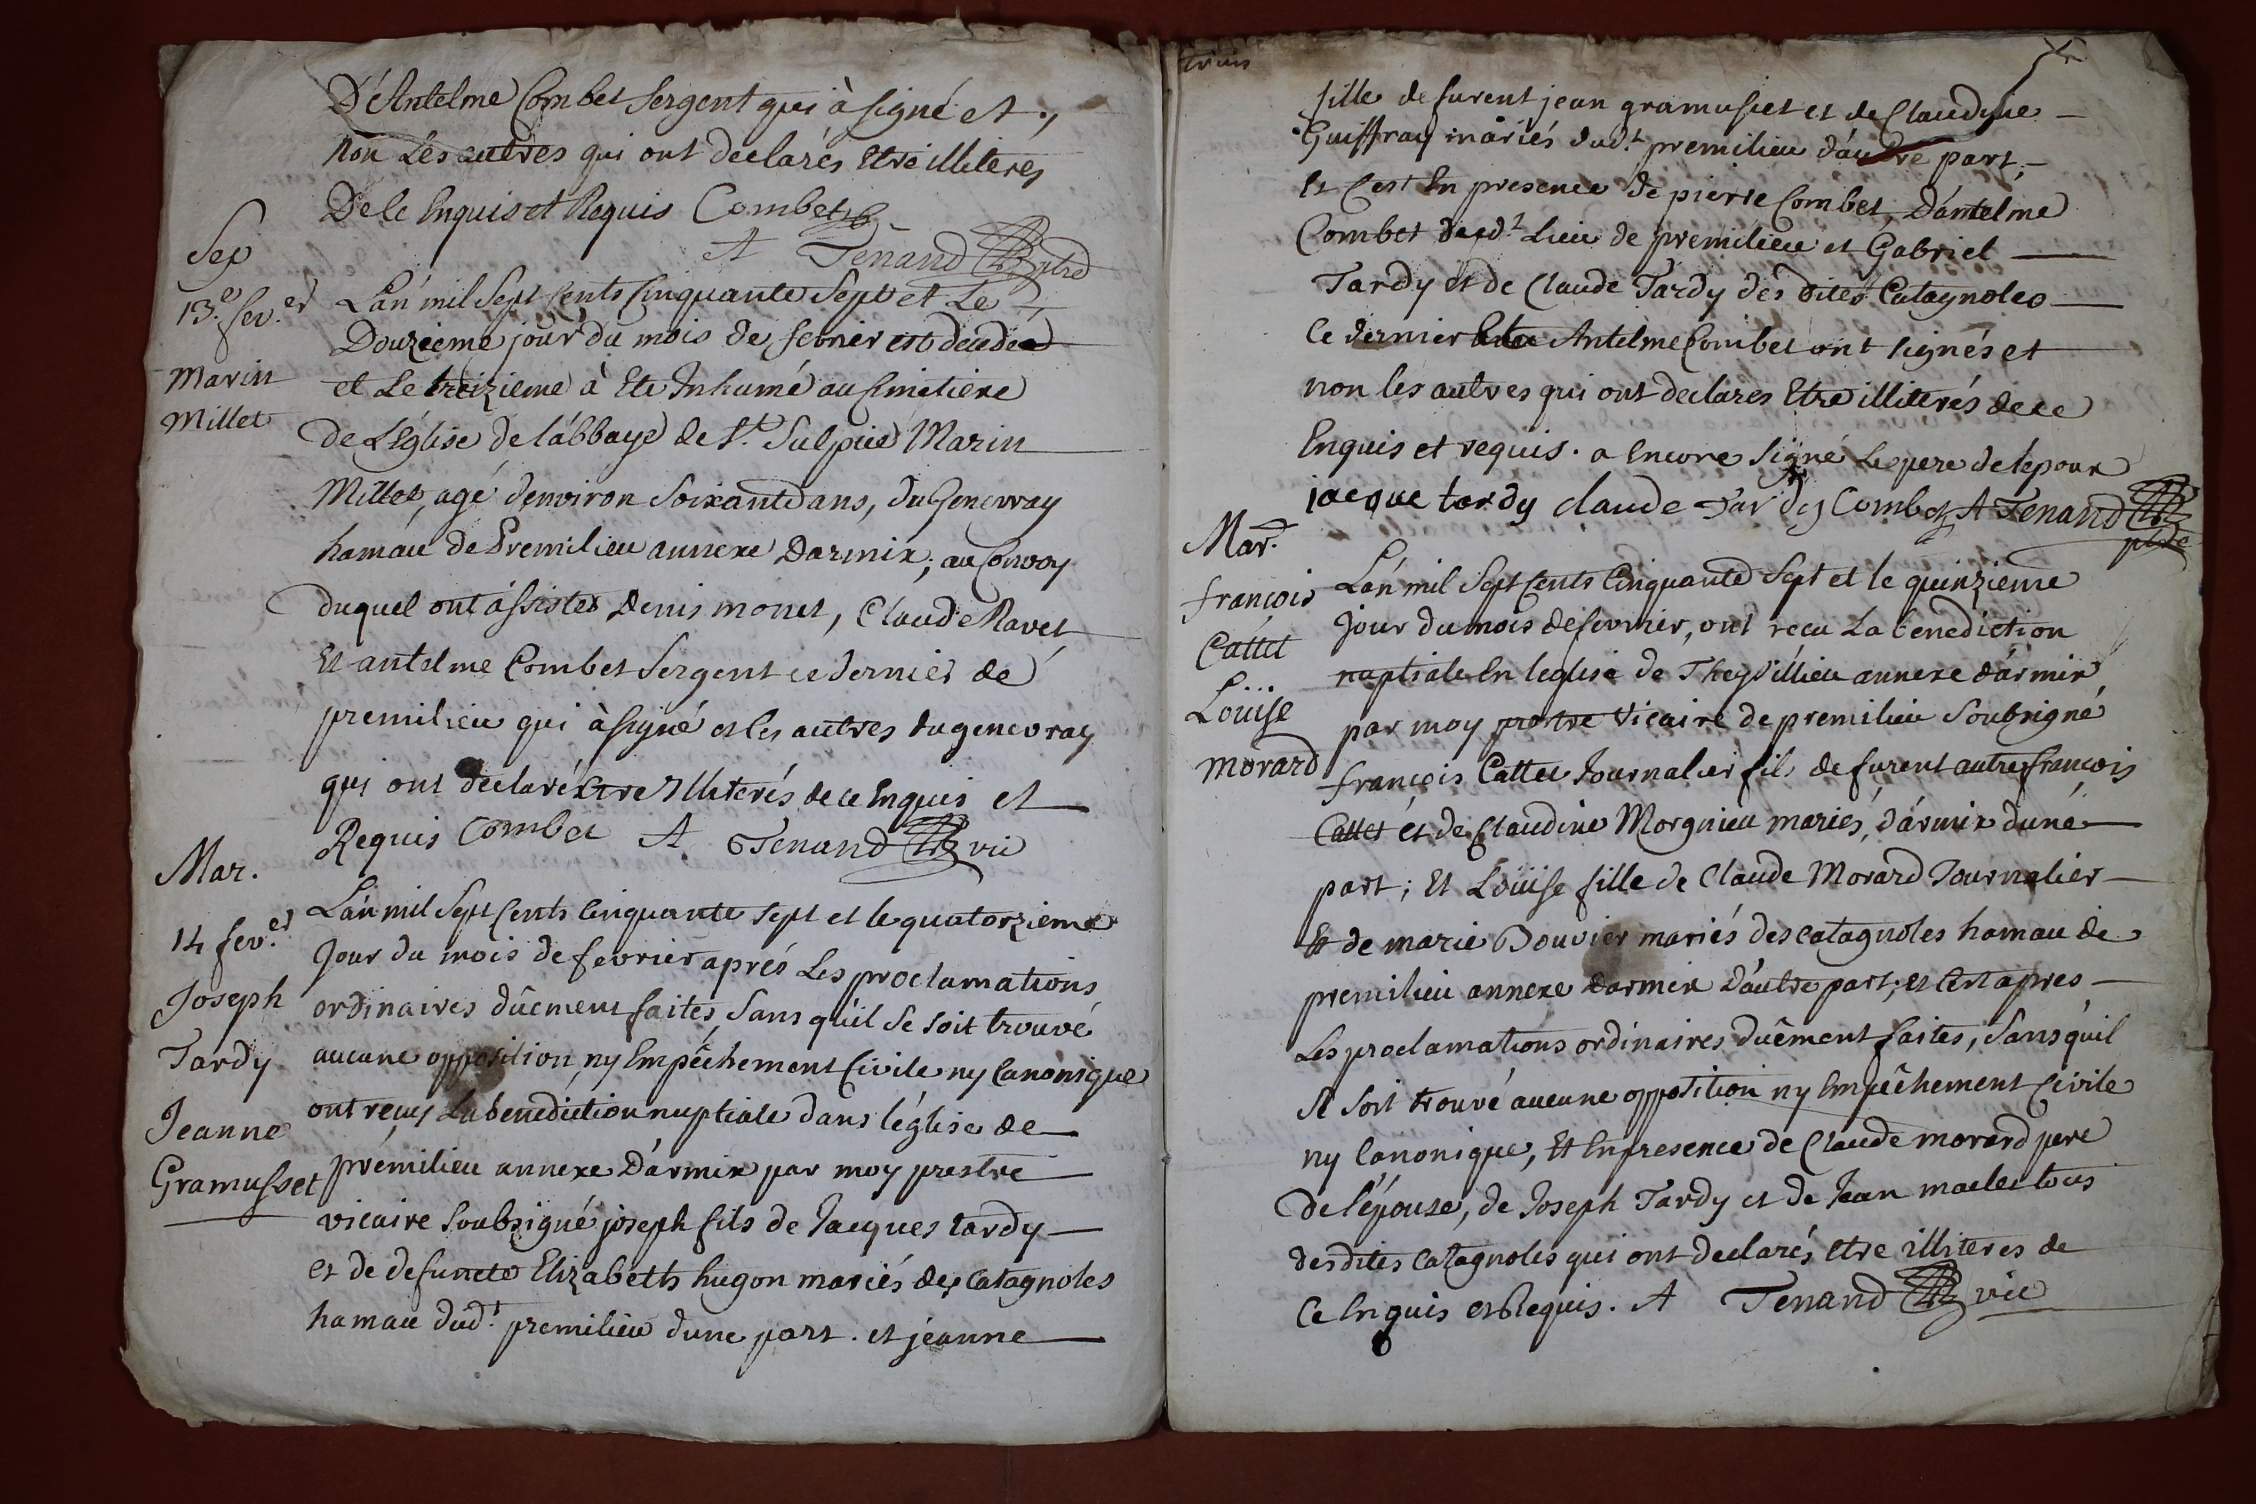 D'Antelme Combet Sergent qui à signé et
non Les autres qui ont declarés Etre illiteres
De le Enquis et Requis Combet
A Tenand
Sep
13.e fev.er
Marin
Millet
L'an mil Sept Cents Cinquante Sept et Le
Douzieme jour du mois de fevrier est decedé
et Le treizieme à Ete Inhumé au Cimetiere
de L'Eglise de l'abbaye de St. Sulpice Marin
Millet, agé d'environ Soixante ans, du Genevray
hamau de Premilieu annexe Darmix; au Convoy
duquel ont assistes Denis monet, Claude Ravet
Et antelme Combet Sergent ce dernier de
premilieu qui à signé et les autres du genevray
qui ont declaré Etre Illiterés de ce Enquis et
Requis Combet A Tenand vic
Mar.
14 fev.er
Joseph
Tardy
Jeanne
Gramusset
L'an mil Sept Cents Cinquante sept et le quatorzieme
Jour du mois de fevrier aprés Les proclamations
ordinaires dûement faites, Sans qu'il Se soit trouvé
aucune opposition, ny Empêchement Civile ny Canonique
ont reçus La benediction nuptiale dans l'église de
prémilieu annexe D'armix par moy prestre
vicaire Soubsigné joseph fils de Jacques tardy
et de defuncte Elizabeth hugon mariés des Catagnoles
hamau dud.t premilieu dune part. et jeanne
fille de furent jean gramusset et de Claudine
Guiffray mariés dud.t premilieu d'autre part,
Et C'est En presence de pierre Combet, D'antelme
Combet dud.t Lieu de premilieu et Gabriel
Tardy et de Claude Tardy des dites Catagnoles
Ce dernier Antelme Combet ont signés et
non les autres qui ont declares Etre illiterés de ce
Enquis et requis. a Encore Signé Le pere de lepoux
jacque tardy claude Tardy Combet A Tenand
Mar.
françois
Cattet
L...
Louise
morard
L'an mil Sept Cents Cinquante Sept et le quinzieme
Jour du mois de fevrier, ont reçu La benediction
nuptiale En leglise de Theyzillieu annexe d'armix
par moy prestre Vicaire de premilieu Soubsigné
françois Cattet Journalier fils de furent autre françois
Cattet et de Claudine Morgnieu mariés, d'armix d'une
part; Et Louïse fille de Claude Morard Journalier
Et de marie Bouvier mariés des catagnoles hamau de
premilieu annexe darmix D'autre part; et C'est apres
Les proclamations ordinaires dûement faites, Sans qu'il
Se Soit trouvé aucune opposition ny Empêchement Civile
ny Canonique, Et En presence de Claude morard pere
de l'épouse, de Joseph Tardy et de Jean maclet tous
desdites catagnoles qui ont declarés Etre illiteres de
Ce Enquis et Requis. A Tenand vic